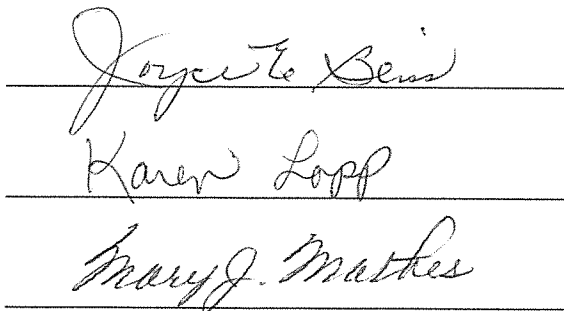 Joyce E Seiss
Karen Lopp
Mary J. Mathes